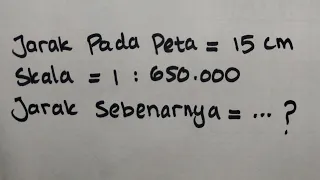 Jarak Pada Peta = 15 cm
Skala = 1 : 650.000
Jarak Sebenarnya = ... ?